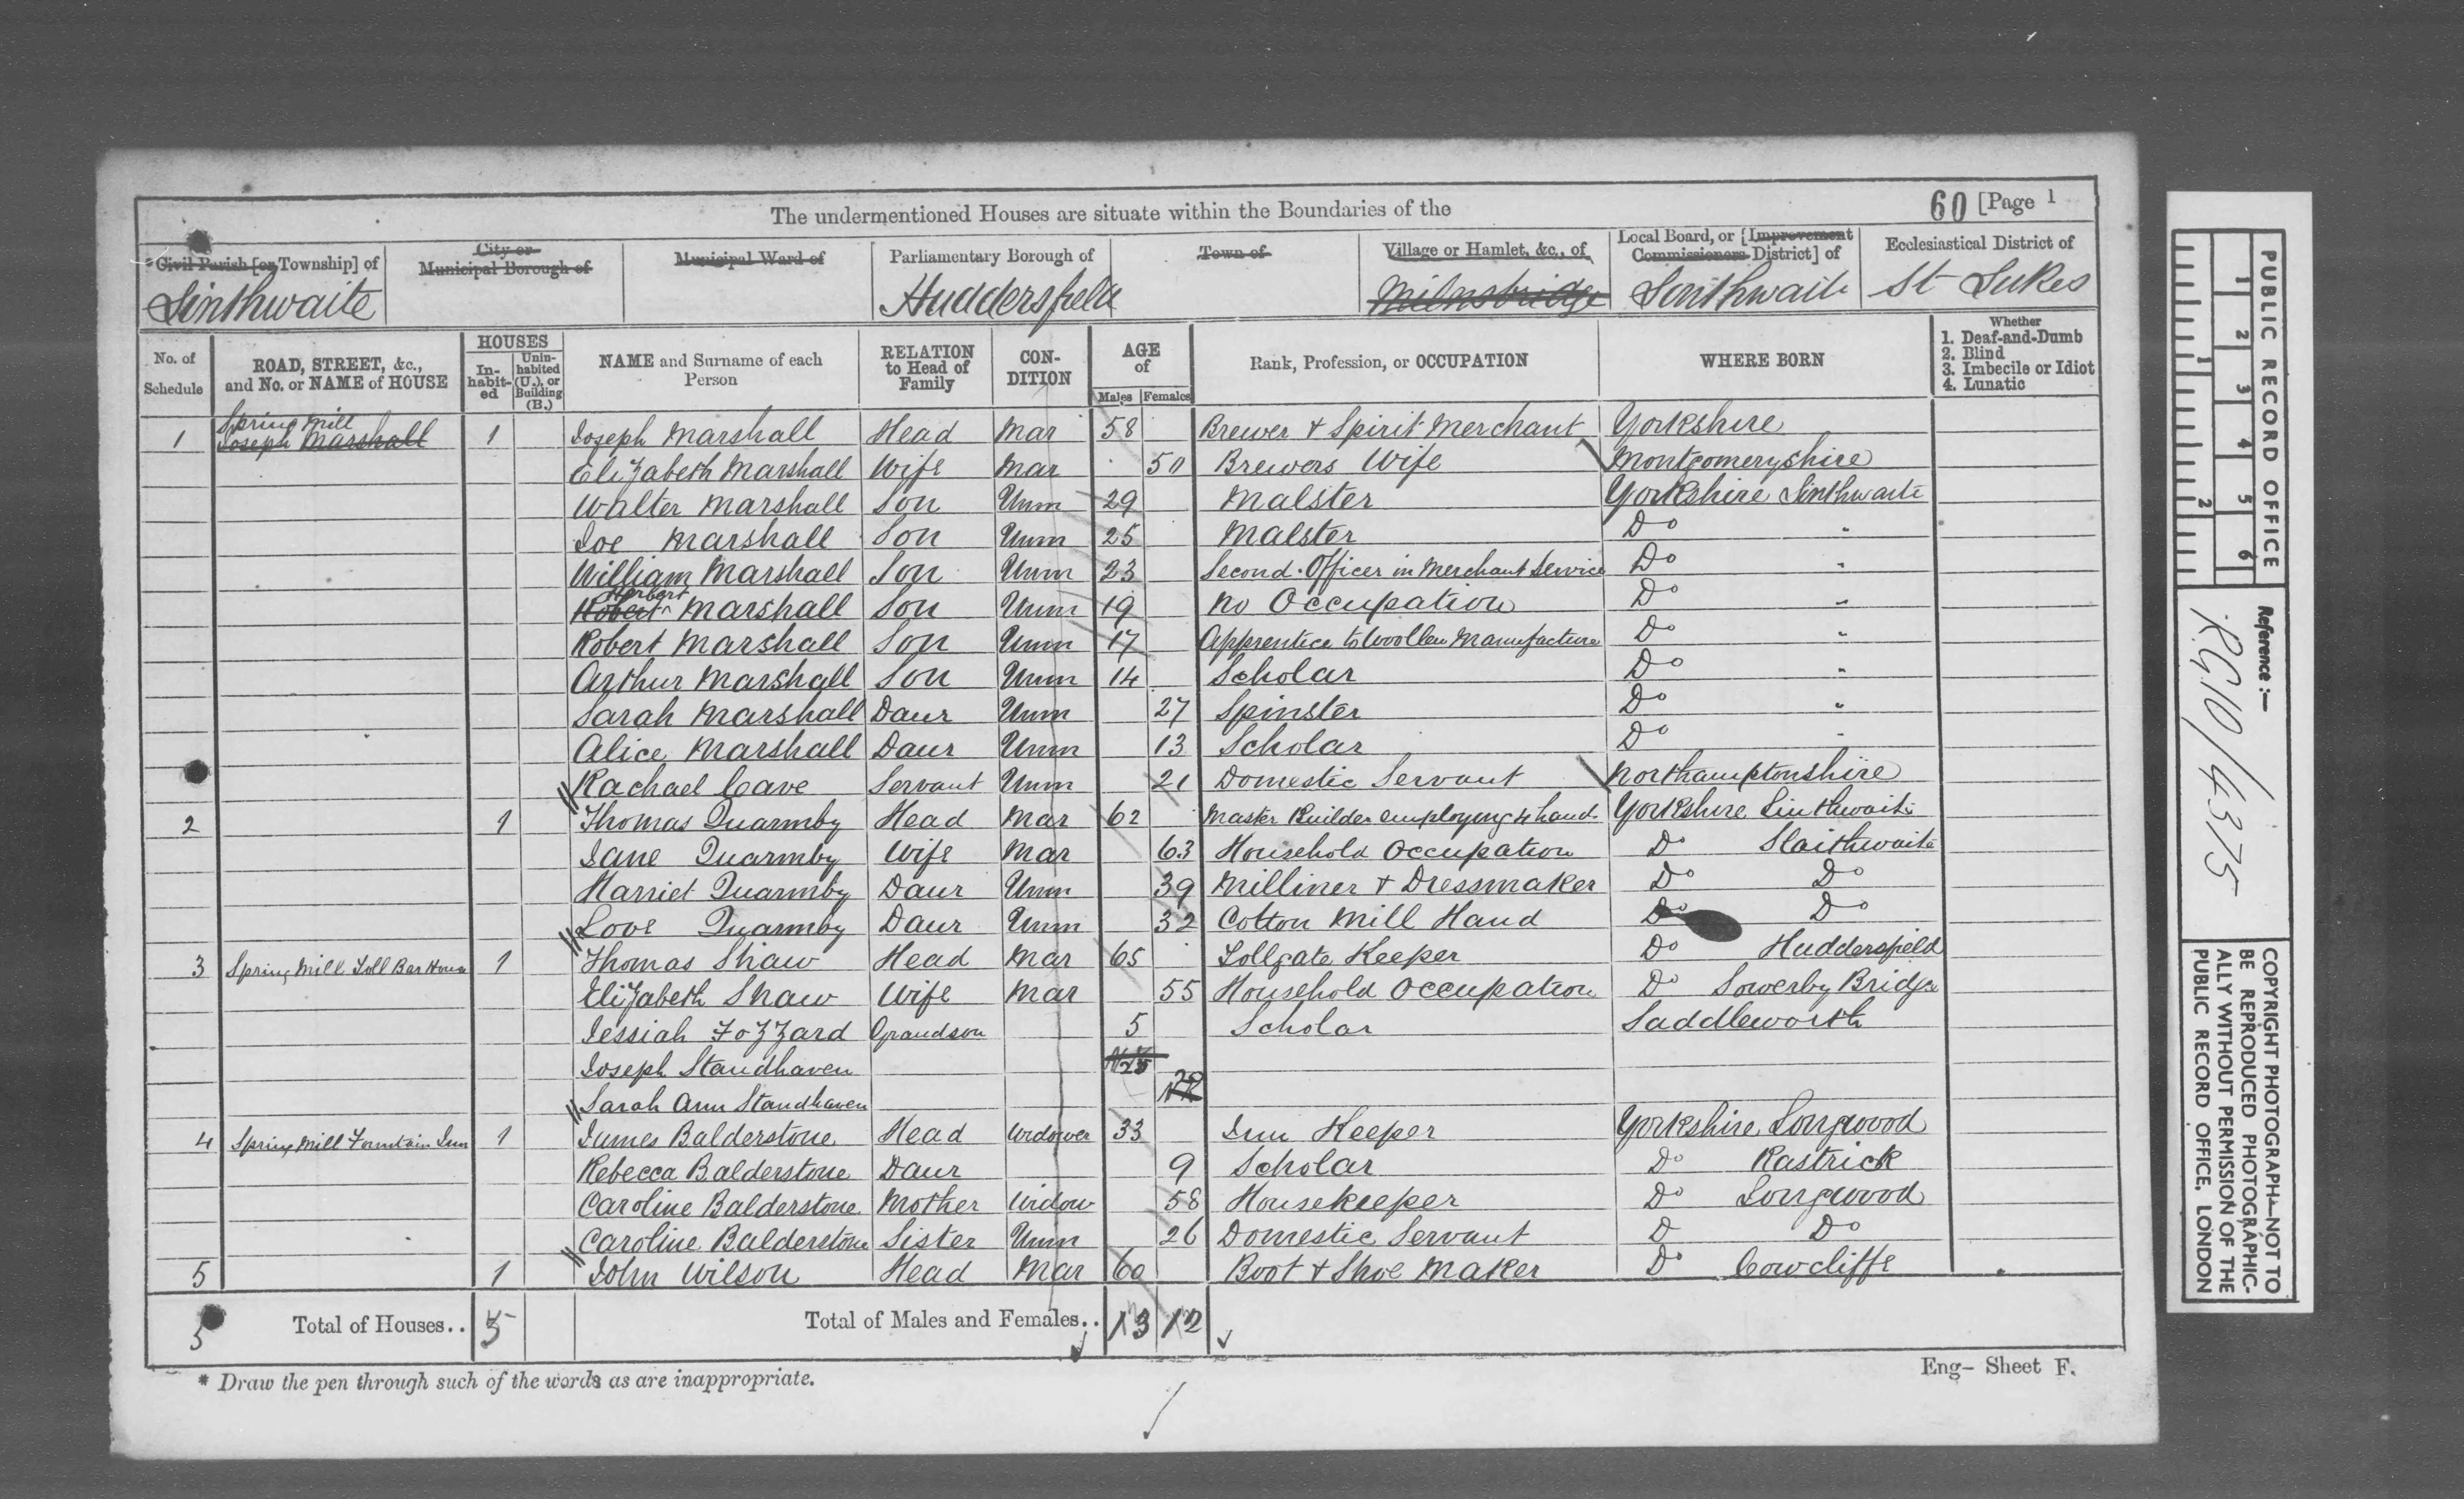 The undermentioned Houses are situate within the Boundaries of the
60 [Page 1
Civil Parish [or Township] of
City or Municipal Borough of
Municipal Ward of
Parliamentary Borough of
Town of
Village or Hamlet, &c., of
Local Board, or [Improvement Commissioners District] of
Ecclesiastical District of
Linthwaite
Huddersfield
Milnsbridge
Linthwaite
St Lukes
No. of Schedule
ROAD, STREET, &c., and No. or NAME of HOUSE
HOUSES
In-habit-ed
Unin-habited (U.), or Building (B.)
NAME and Surname of each Person
RELATION to Head of Family
CON-DITION
AGE of
Males Females
Rank, Profession, or OCCUPATION
WHERE BORN
Whether
1. Deaf-and-Dumb
2. Blind
3. Imbecile or Idiot
4. Lunatic
Spring Mill
1 Joseph Marshall 1 Joseph Marshall Head Mar 58 Brewer & Spirit Merchant Yorkshire
Elizabeth Marshall Wife Mar 50 Brewers Wife Montgomeryshire
Walter Marshall Son Unm 29 Malster Yorkshire Linthwaite
Joe Marshall Son Unm 25 Malster Do "
William Marshall Son Unm 23 Second Officer in Merchant Service Do "
Herbert
Robert Marshall Son Unm 19 No Occupation Do "
Robert Marshall Son Unm 17 Apprentice to Woollen Manufacture Do "
Arthur Marshall Son Unm 14 Scholar Do "
Sarah Marshall Daur Unm 27 Spinster Do "
Alice Marshall Daur Unm 13 Scholar Do "
Rachael Cave Servant Unm 21 Domestic Servant Northamptonshire
2 1 Thomas Quarmby Head Mar 62 Master Builder employing 4 hands Yorkshire Linthwaite
Jane Quarmby Wife Mar 63 Household Occupation Do Slaithwaite
Harriet Quarmby Daur Unm 39 Milliner & Dressmaker Do Do
Love Quarmby Daur Unm 32 Cotton Mill Hand Do Do
3 Spring Mill Toll Bar House 1 Thomas Shaw Head Mar 65 Tollgate Keeper Do Huddersfield
Elizabeth Shaw Wife Mar 55 Household Occupation Do Sowerby Bridge
Jessiah Fozzard Grandson 5 Scholar Saddleworth
Joseph Standhaven
Sarah Ann Standhaven
4 Spring Mill Fountain Inn 1 James Balderstone Head Widower 33 Inn Keeper Yorkshire Longwood
Rebecca Balderstone Daur 9 Scholar Do Rastrick
Caroline Balderstone Mother Widow 58 Housekeeper Do Longwood
Caroline Balderstone Sister Unm 26 Domestic Servant D Do
5 1 John Wilson Head Mar 60 Boot & Shoe Maker Do Cowcliffe
5 Total of Houses.. 5 Total of Males and Females.. 13 12
* Draw the pen through such of the words as are inappropriate.
Eng- Sheet F.
PUBLIC RECORD OFFICE
1 2 3 4 5 6
1 2
Reference :-
RG10/4375
COPYRIGHT PHOTOGRAPH-NOT TO
BE REPRODUCED PHOTOGRAPHIC-
ALLY WITHOUT PERMISSION OF THE
PUBLIC RECORD OFFICE, LONDON